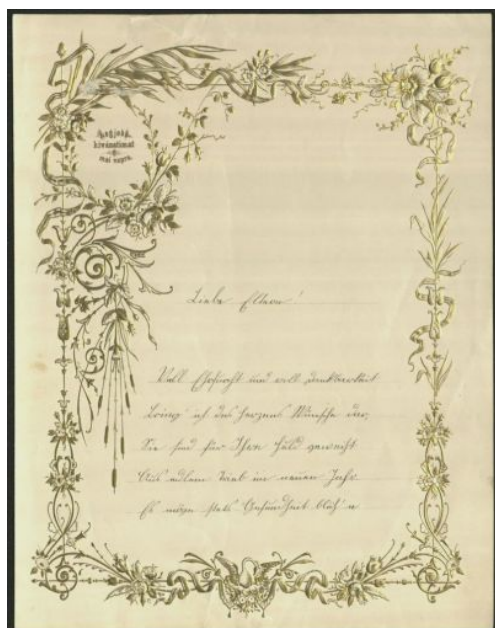 Fogadják
kivánatimat
mai napra.
Liebe Eltern!
Voll Ehrfurcht und voll Dankbarkeit
bring' ich des Herzens Wünsche dar,
Sie sind für Ihre Huld geweiht
Aus edlem Trieb im neuen Jahr
Es mögen stets Gesundheit blüh'n